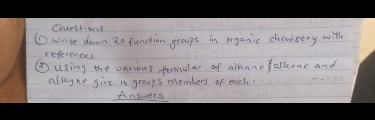 Questions
① Write down 20 function groups in organic chemistry with
references
② Using the various formular of alkane & alkene and
alkyne give groups members of each.
Answers